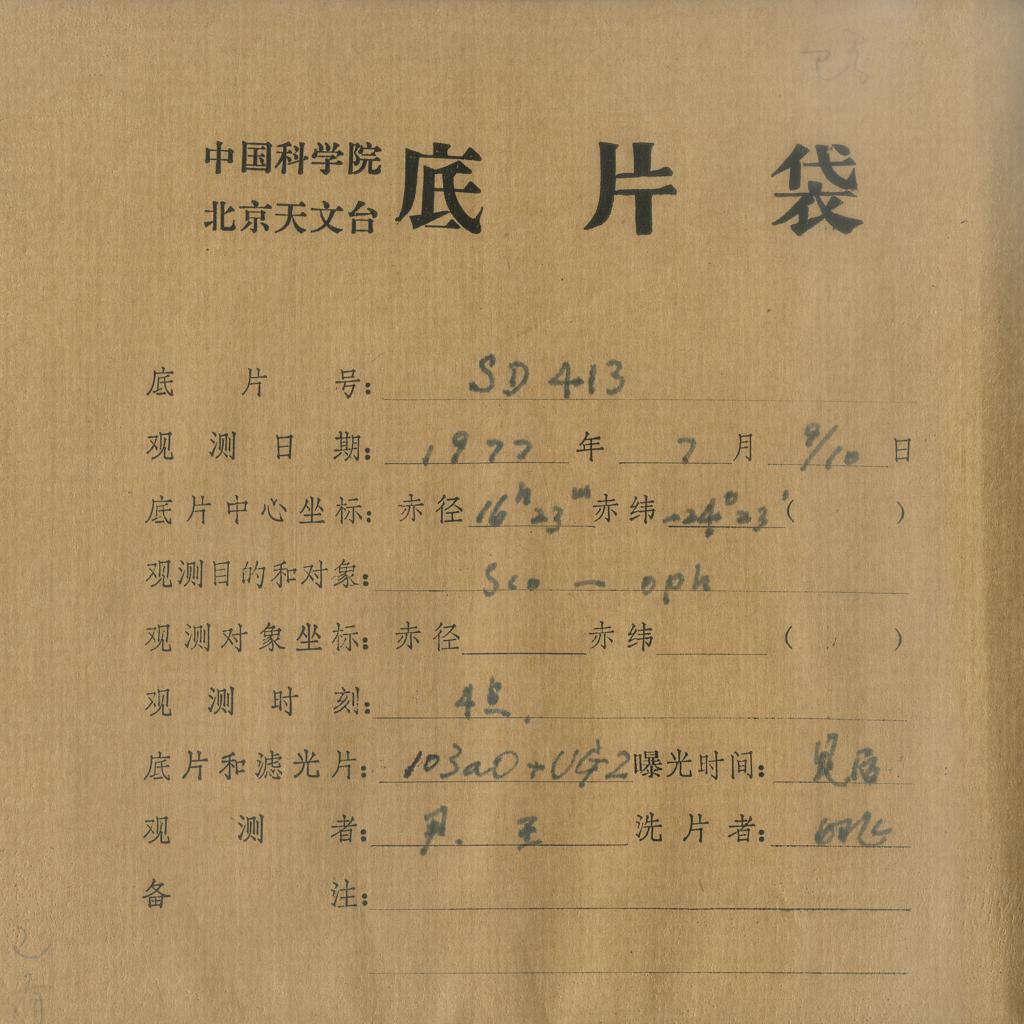 中国科学院
北京天文台
底片袋
底片号: SD 413
观测日期: 1977 年 7 月 9/10 日
底片中心坐标: 赤径 16h 23m 赤纬 -24° 23' ( )
观测目的和对象: Sco — oph
观测对象坐标: 赤径 赤纬 ( )
观测时刻: 4点.
底片和滤光片: 103aO+UG2 曝光时间: 见后
观测者: 尹. 王 洗片者:
备注: